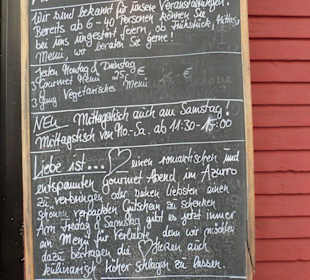 Wir sind bekannt für unsere Veranstaltungen!
Bereits ab 6 - 40 Personen können Sie
bei uns ungestört feiern, ob Frühstück,
Menü, wir beraten Sie gerne!
Jeden Montag & Dienstag
3 Gourmet Menü 25,- €
3 Gang Vegetarisches Menü €
NEU - Mittagstisch auch am Samstag!
Mittagstisch von Mo.-Sa. ab 11:30 - 15:00
Liebe ist... ♡ einen romantischen und
entspannten Gourmet Abend im Azurro
zu verbringen oder deinen Liebsten einen
schönen verpackten Gutschein zu schenken
Am Freitag & Samstag gibt es jetzt immer
ein Menü für Verliebte, denn wir möchten
dazu beitragen die ♡ Herzen auch
kulinarisch höher schlagen zu lassen.